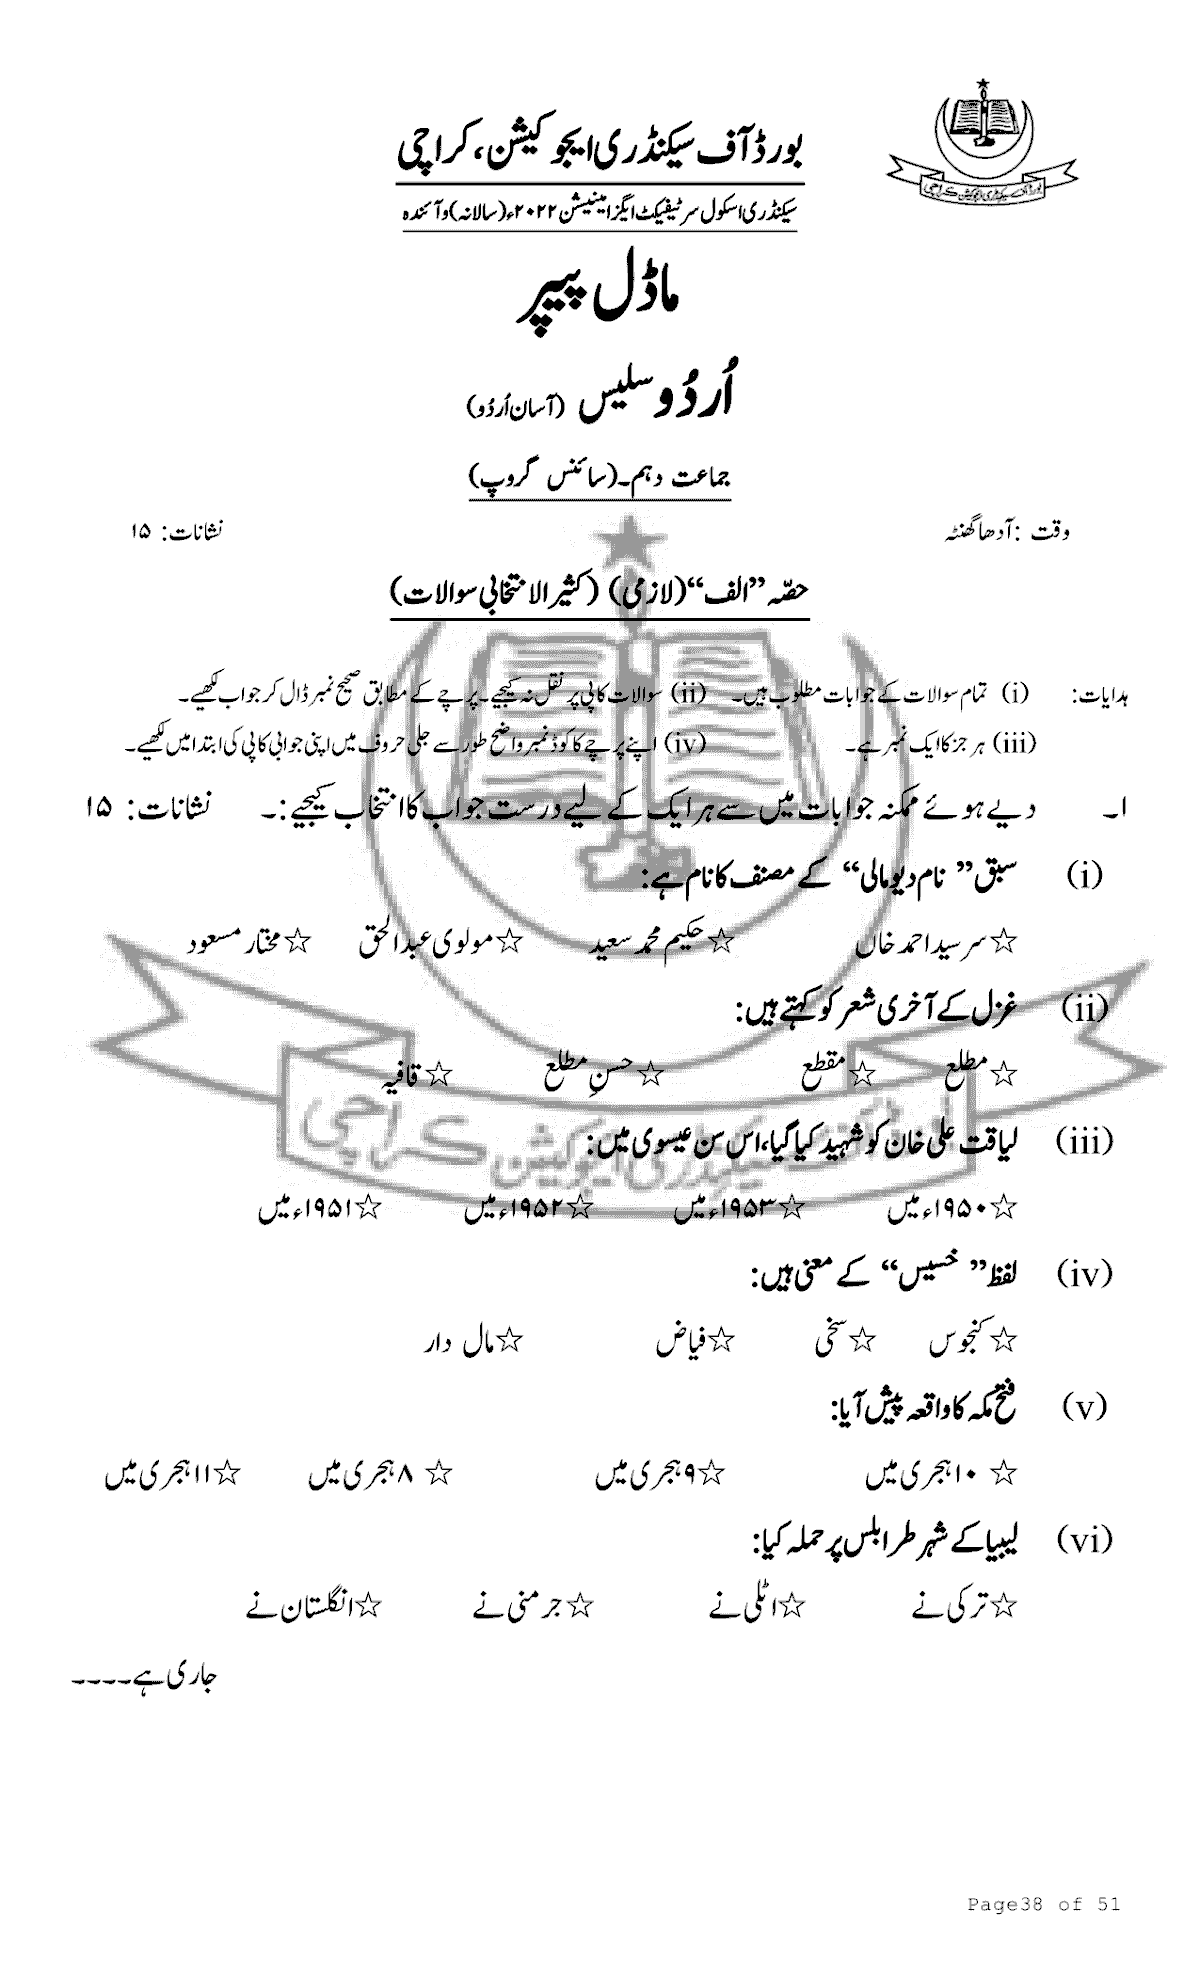 بورڈ آف سیکنڈری ایجوکیشن، کراچی
بورڈ آف سیکنڈری ایجوکیشن کراچی
سیکنڈری اسکول سرٹیفیکٹ ایگزامینیشن ۲۰۲۲ء (سالانہ) و آئندہ
ماڈل پیپر
اُردُو سلیس (آسان اُردُو)
جماعت دہم۔(سائنس گروپ)
وقت : آدھا گھنٹہ نشانات: ۱۵
حصّہ ”الف“ (لازمی) (کثیر الانتخابی سوالات)
ہدایات: (i) تمام سوالات کے جوابات مطلوب ہیں۔ (ii) سوالات کاپی پر نقل نہ کیجیے۔ پرچے کے مطابق صحیح نمبر ڈال کر جواب لکھیے۔
(iii) ہر جز کا ایک نمبر ہے۔ (iv) اپنے پرچے کا کوڈ نمبر واضح طور سے جلی حروف میں اپنی جوابی کاپی کی ابتدا میں لکھیے۔
۱۔ دیے ہوئے ممکنہ جوابات میں سے ہر ایک کے لیے درست جواب کا انتخاب کیجیے:۔ نشانات: ۱۵
(i) سبق ” نام دیو مالی“ کے مصنف کا نام ہے:
☆ سر سید احمد خاں ☆ حکیم محمد سعید ☆ مولوی عبدالحق ☆ مختار مسعود
(ii) غزل کے آخری شعر کو کہتے ہیں:
☆ مطلع ☆ مقطع ☆ حسنِ مطلع ☆ قافیہ
(iii) لیاقت علی خان کو شہید کیا گیا، اس سن عیسوی میں:
☆ ۱۹۵۰ء میں ☆ ۱۹۵۳ء میں ☆ ۱۹۵۲ء میں ☆ ۱۹۵۱ء میں
(iv) لفظ ” خسیس“ کے معنی ہیں:
☆ کنجوس ☆ سخی ☆ فیاض ☆ مال دار
(v) فتح مکہ کا واقعہ پیش آیا:
☆ ۱۰ ہجری میں ☆ ۹ ہجری میں ☆ ۸ ہجری میں ☆ ۱۱ ہجری میں
(vi) لیبیا کے شہر طرابلس پر حملہ کیا:
☆ ترکی نے ☆ اٹلی نے ☆ جرمنی نے ☆ انگلستان نے
جاری ہے۔۔۔۔
Page38 of 51